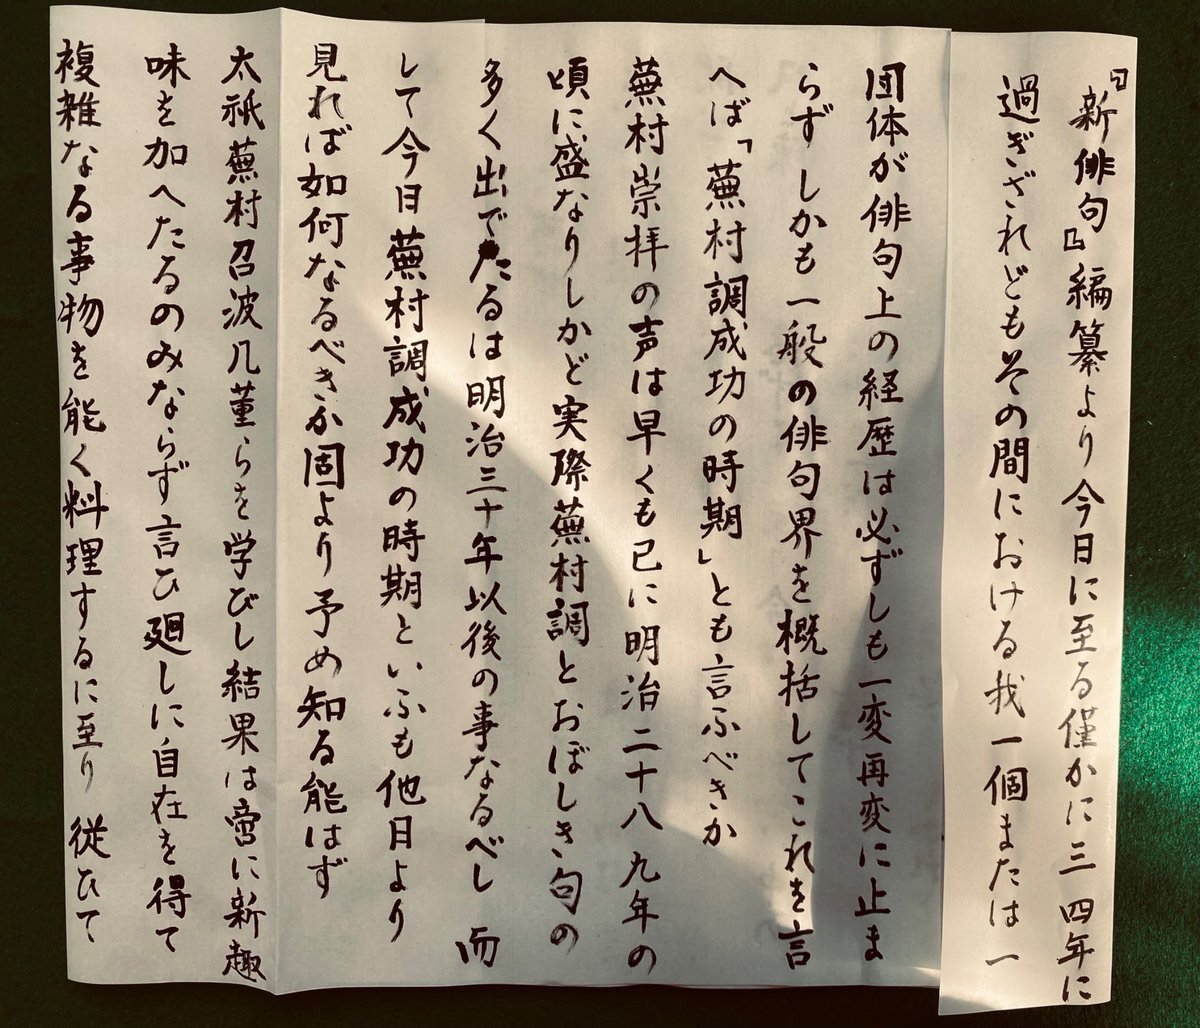 『新俳句』編纂より今日に至る僅かに三四年に
過ぎざれどもその間における我一個または一
団体が俳句上の経歴は必ずしも一変再変に止ま
らずしかも一般の俳句界を概括してこれを言
へば「蕪村調成功の時期」とも言ふべきか
蕪村崇拝の声は早くも已に明治二十八九年の
頃に盛なりしかど実際蕪村調とおぼしき句の
多く出でたるは明治三十年以後の事なるべし 而
して今日蕪村調成功の時期といふも他日より
見れば如何なるべきか固より予め知る能はず
太祇蕪村召波几董らを学びし結果は啻に新趣
味を加へたるのみならず言ひ廻しに自在を得て
複雑なる事物を能く料理するに至り 従ひて